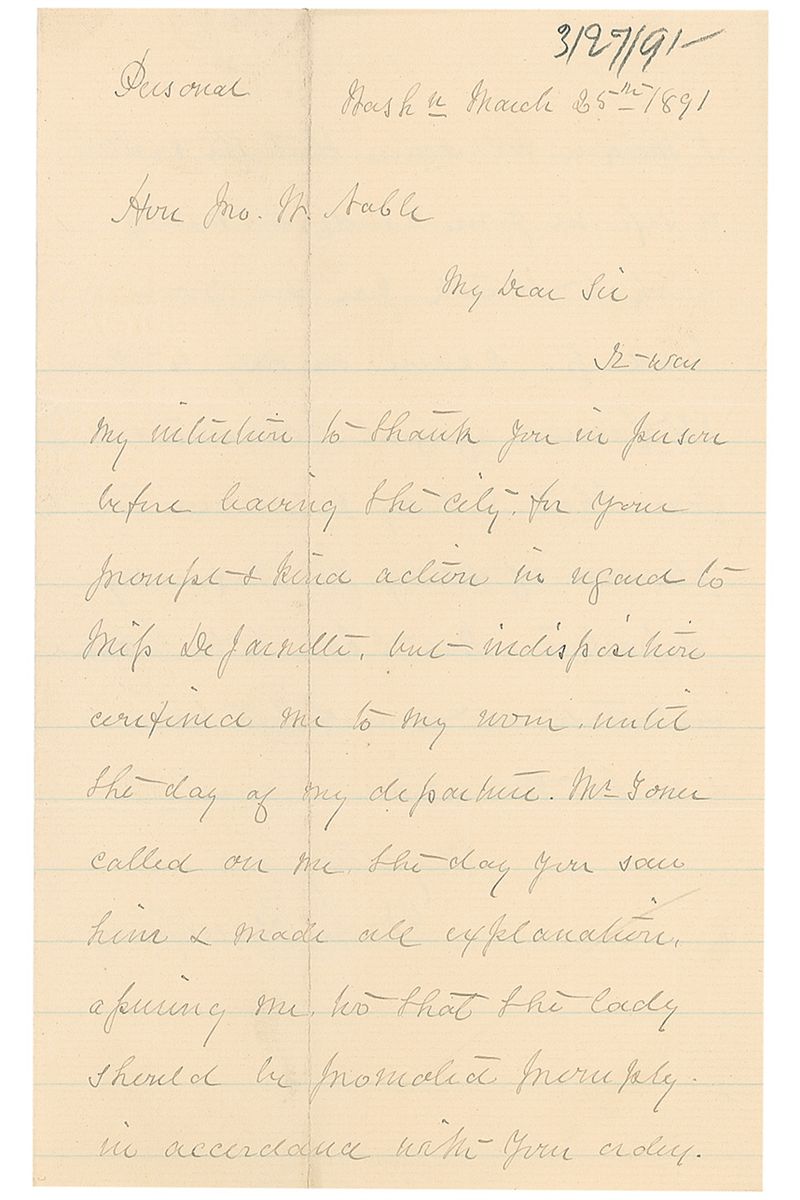 3/27/91
Personal
Nashn March 25th 1891
Hon Jno. W. Noble
My Dear Sir
It was
my intention to thank you in person
before leaving the city, for your
prompt & kind action in regard to
Miss De Jarnette, but indisposition
confined me to my room, until
the day of my departure. Mr
called on me, the day you saw
him & made all explanation,
assuring me, too that the lady
should be promoted promptly.
in accordance with your orders.